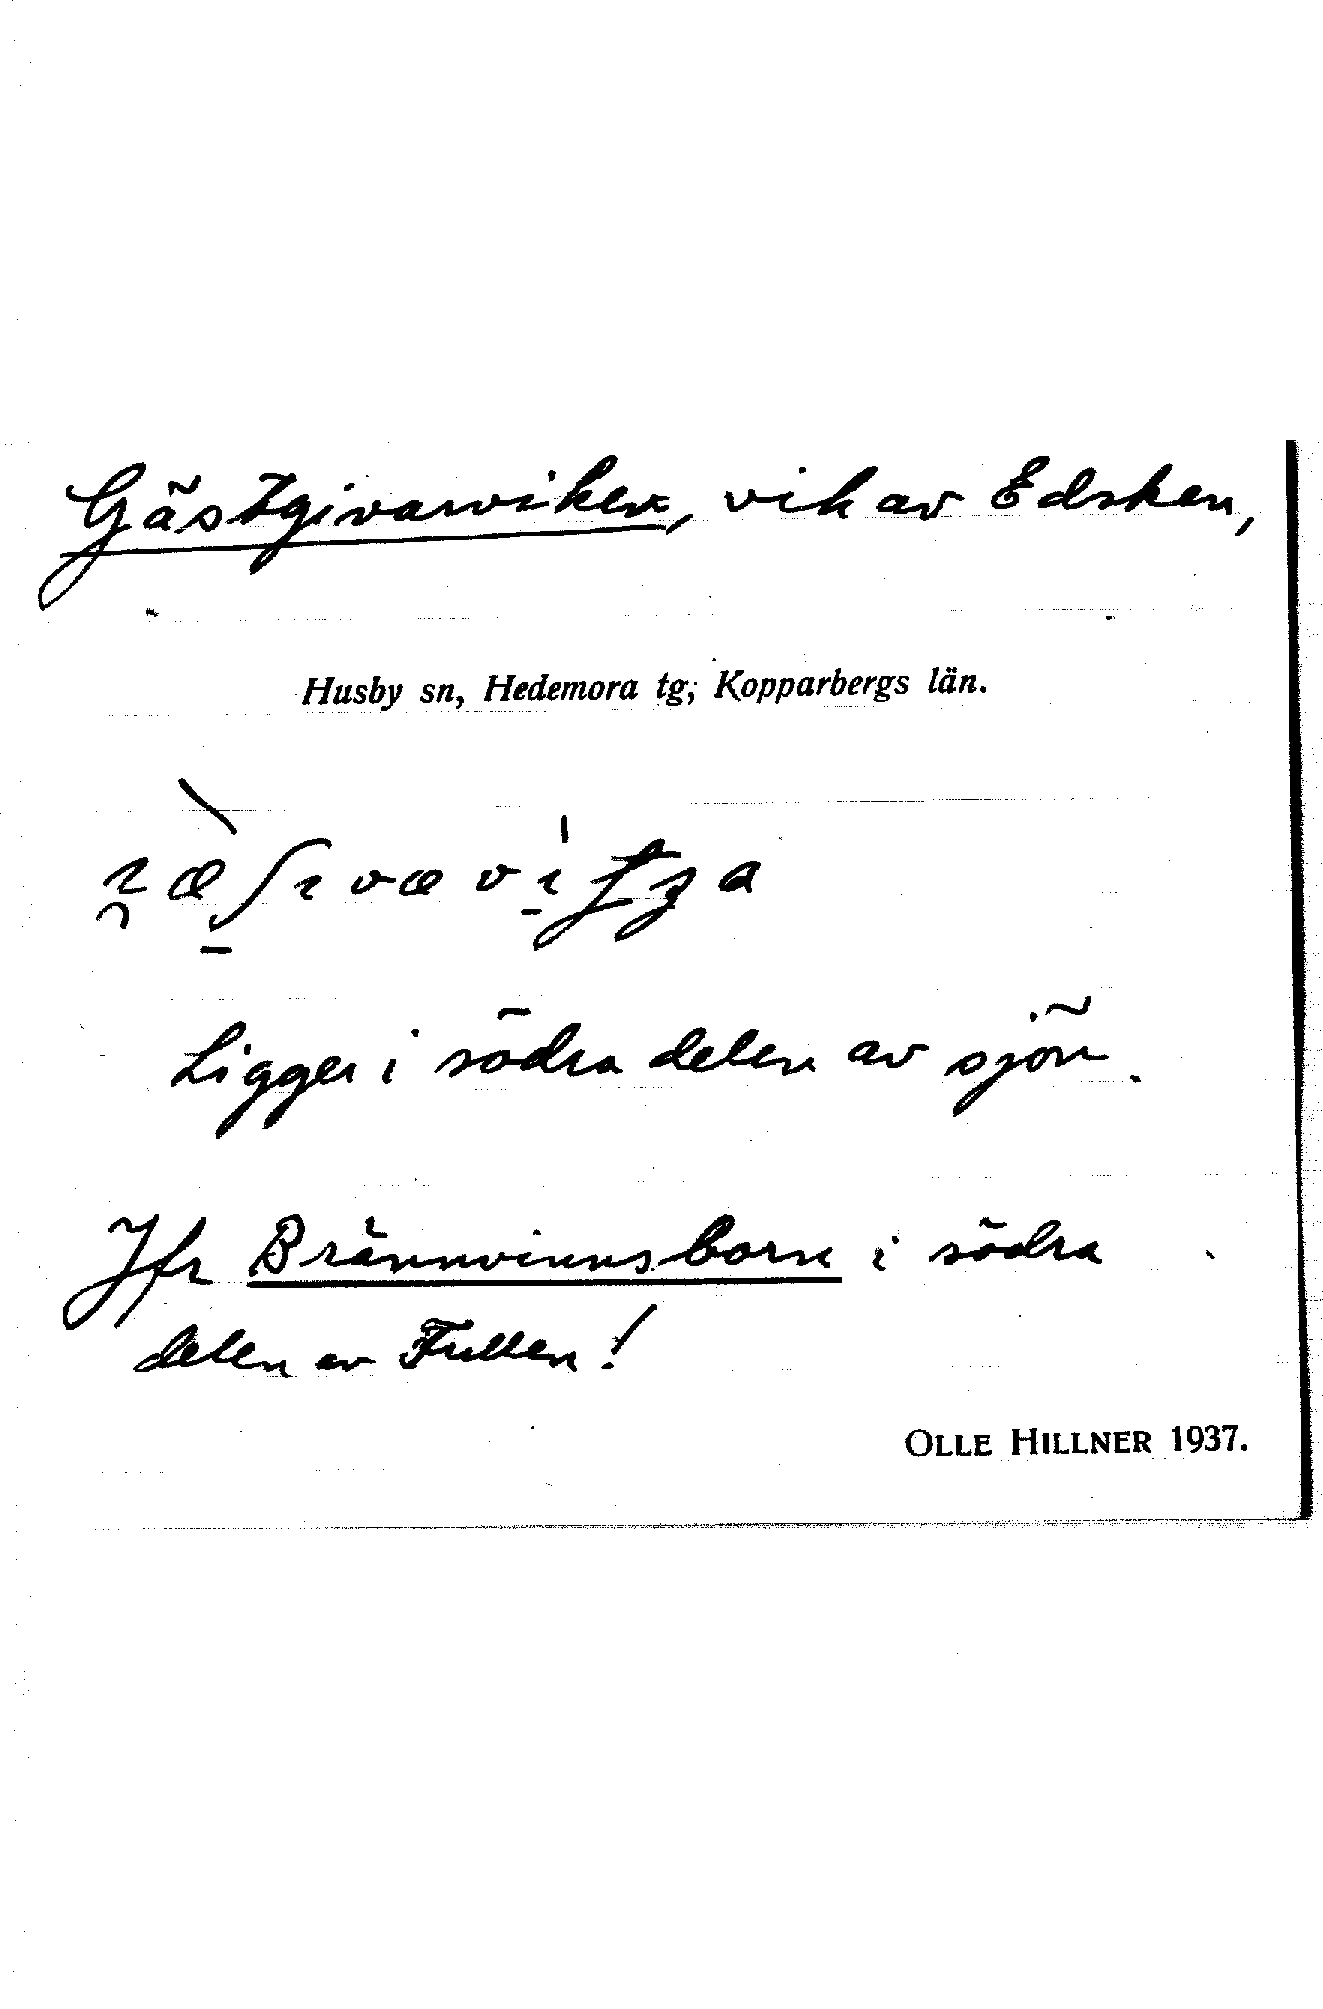 Gästgivarviken, vik av Edsken,
Husby sn, Hedemora tg, Kopparbergs län.
Ligger i södra delen av sjön.
Jfr Brännvinnsborn i södra
delen av Fullen!
OLLE HILLNER 1937.